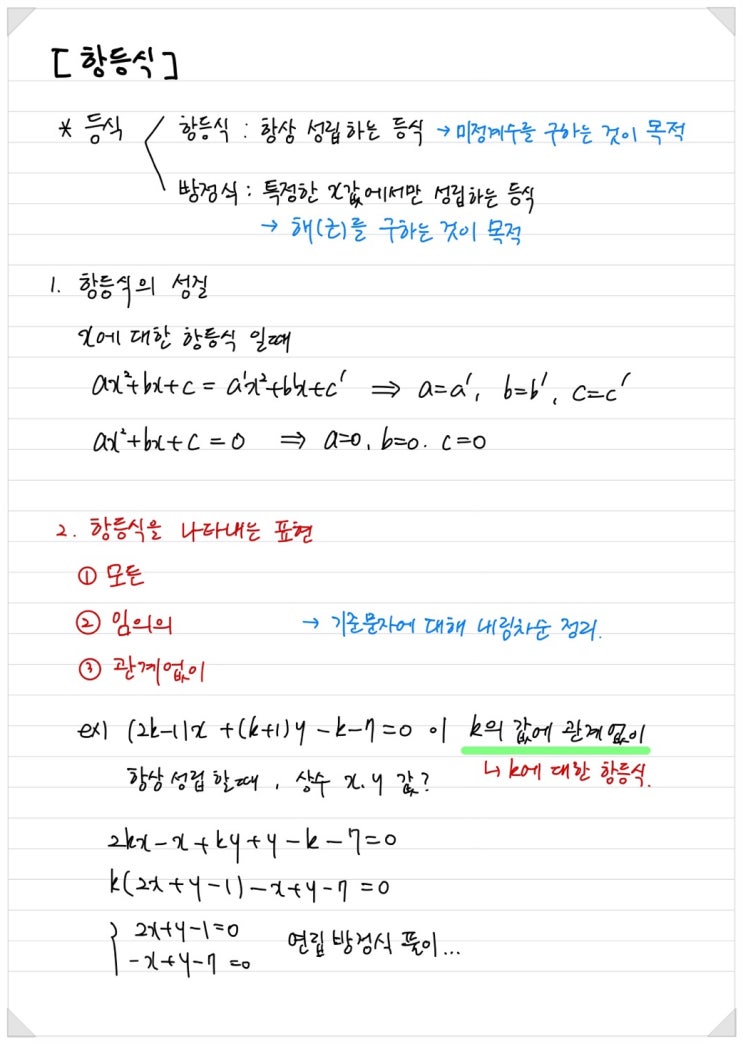 [항등식]
* 등식 < 항등식 : 항상 성립하는 등식 → 미정계수를 구하는 것이 목적
방정식 : 특정한 x값에서만 성립하는 등식
→ 해(근)를 구하는 것이 목적
1. 항등식의 성질
x에 대한 항등식 일때
ax²+bx+c = a'x²+b'x+c' ⇒ a=a', b=b', c=c'
ax²+bx+c=0 ⇒ a=0, b=0. c=0
2. 항등식을 나타내는 표현
① 모든
② 임의의 → 기준문자에 대해 내림차순 정리.
③ 관계없이
ex) (2k-1)x+(k+1)y-k-7=0 이 k의 값에 관계없이
항상 성립 할때, 상수 x.y 값? ↳ k에 대한 항등식.
2kx-x+ky+y-k-7=0
k(2x+y-1)-x+y-7=0
{ 2x+y-1=0
-x+y-7=0 연립 방정식 풀이...